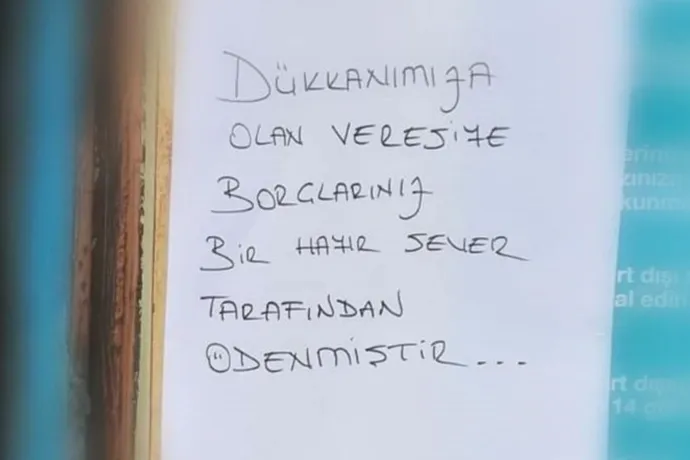 DÜKKANIMIZA
OLAN VERESİYE
BORÇLARINIZ
BİR HAYIR SEVER
TARAFINDAN
ÖDENMİŞTİR...
rt dışı
al edin
rt dışı
14